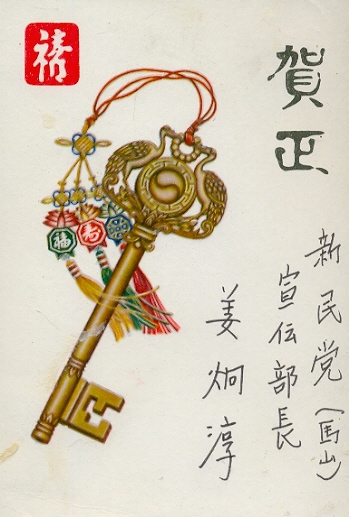 賀正
新民党(馬山)
宣伝部長
姜炯淳
福
壽